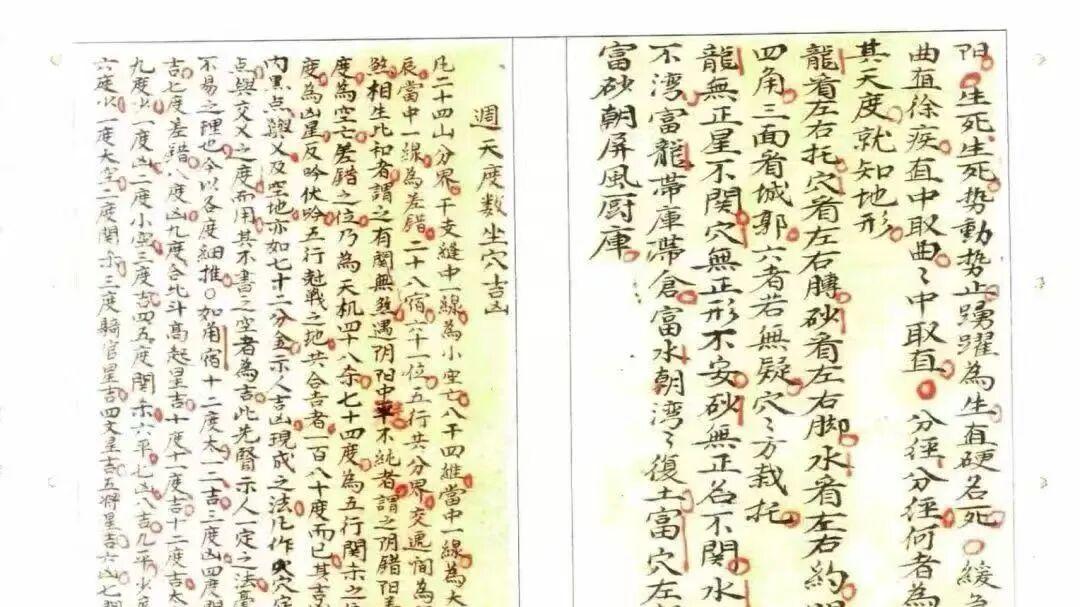 阳生死生死势動势止踴躍為生直硬名死緩急
曲直徐疾直中取曲〻中取直　分徑分徑何者為
其天度就知地形
龍看左右托穴看左右膊砂看左右脚水看左右約
四角三面看城郭六者若無疑穴〻方栽托
龍無正星不関穴無正形不安砂無正名不関水
不湾富龍帶庫帶倉富水朝湾〻復土富穴左
富砂朝屏風厨庫
週天度数坐穴吉凶
凡二十四山分界干支縫中一線為小空亡八干四維當中一線為大
辰當中一線為差錯二十八宿六十一位五行共分界交遇間為
煞相生比和者謂之有関無煞遇阴阳中不純者謂之阴錯阳差
度為空亡差錯之位乃為天机四十八余七十四度為五行関杀之位
度為凶星反吟伏吟五行尅戰之地共合吉者一百八十度而已其吉凶
内黑点與乂及空地亦如七十二分金示人吉凶現成之法凡作穴定
点與交乂之度而用其不書之空者為吉此先賢示人一定之法
不易之理也今以各度細推〇如角宿十二度太一二吉三度凶四度関
吉七度差錯八度凶九度合北斗高起星吉十度十一度吉十二度吉太
九度少一度凶二度小空三度吉四五度関杀六平七凶八吉九平
六度少一度大空二度関杀三度騎官星吉四文星吉五將星吉六凶七